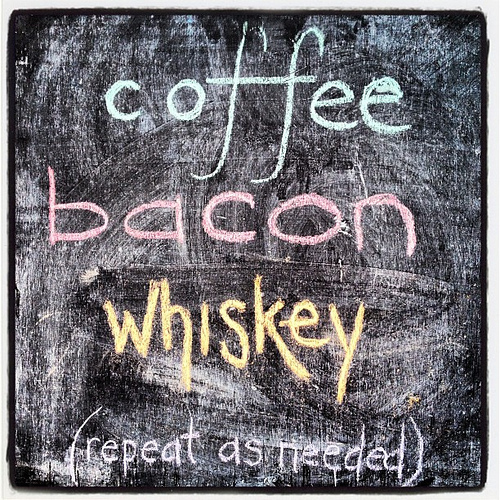 coffee
bacon
whiskey
(repeat as needed)